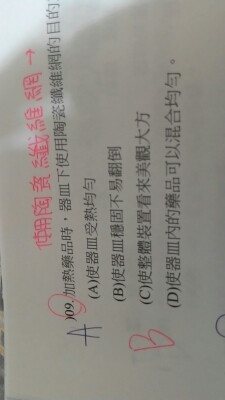 使用陶瓷纖維網→
A 09.加熱藥品時，器皿下使用陶瓷纖維網的目的
(A)使器皿受熱均勻
(B)使器皿穩固不易翻倒
B (C)使整體裝置看來美觀大方
(D)使器皿內的藥品可以混合均勻。